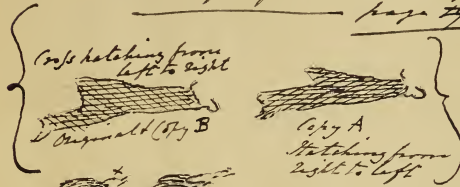 page
Cross hatching from
left to right
Original & Copy B
Copy A
Hatching from
right to left